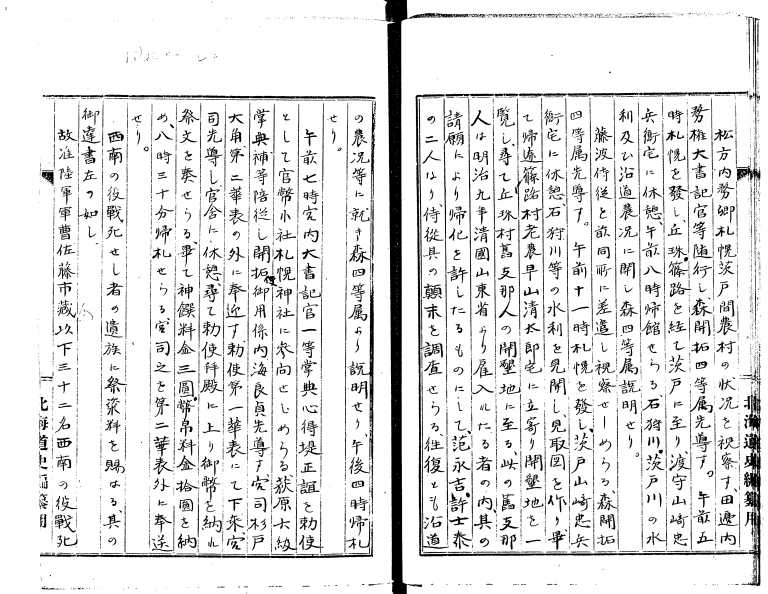 松方内務卿札幌茨戸間農村の状況を視察す、田邊内
務権大書記官等随行し森開拓四等属先導す。午前五
時札幌を發し、丘珠、篠路を経て茨戸に至り、渡守山崎忠
兵衛宅に休憩、午前八時帰館せらる石狩川、茨戸川の水
利及び沿道農況に関し森四等属説明せり。
藤波侍従を前同所に差遣し視察せしめらる森開拓
四等属先導す。午前十一時札幌を發し、茨戸山崎忠兵
衛宅に休憩、石狩川等の水利を見聞し、見取図を作り畢
て帰途篠路村老農早山清太郎宅に立寄り開墾地を一
覧し、尋て丘珠村舊支那人の開墾地に至る、此の舊支那
人は明治九年清國山東省より雇入れたる者の内其の
請願により帰化を許したるものにして、范永吉、許士泰
の二人なり、侍從其の顛末を調査せらる、往復とも沿道
北海道史編纂用
の農況等に就き森四等属より説明せり、午後四時帰札
せり。
午前七時宮内大書記官一等掌典心得堤正誼を勅使
として官幣小社札幌神社に参向せしめらる荻原六級
掌典補等陪従し開拓使御用係内海良貞先導す、宮司杉戸
大角第二華表の外に奉迎す勅使第一華表にて下乗宮
司先導し官舎に休憩、尋て勅使拝殿に上り御幣を納れ
祭文を奏せらる、畢て神饌料金三圓幣帛料金拾圓を納
め、八時三十分帰札せらる宮司之を第二華表外に奉送
せり。
西南の役戰死せし者の遺族に祭粢料を賜はる、其の
御達書左の如し、
故准陸軍軍曹佐藤市蔵以下三十二名西南の役戰死
北海道史編纂用